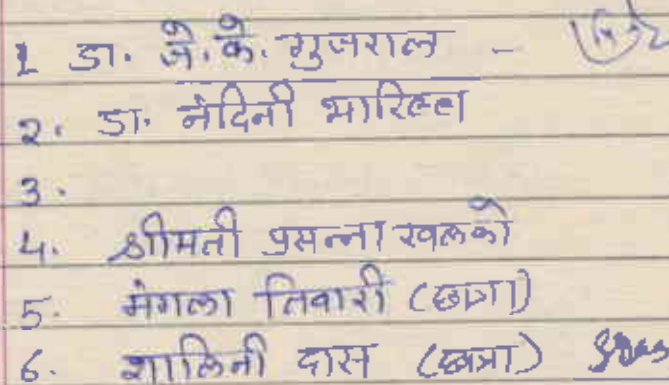 1 डा. जे. के. गुजराल -
2. डा. नंदिनी भारिल्ल
3.
4. श्रीमती प्रसन्ना खलको
5. मंगला तिवारी (छात्रा)
6. शालिनी दास (छात्रा)